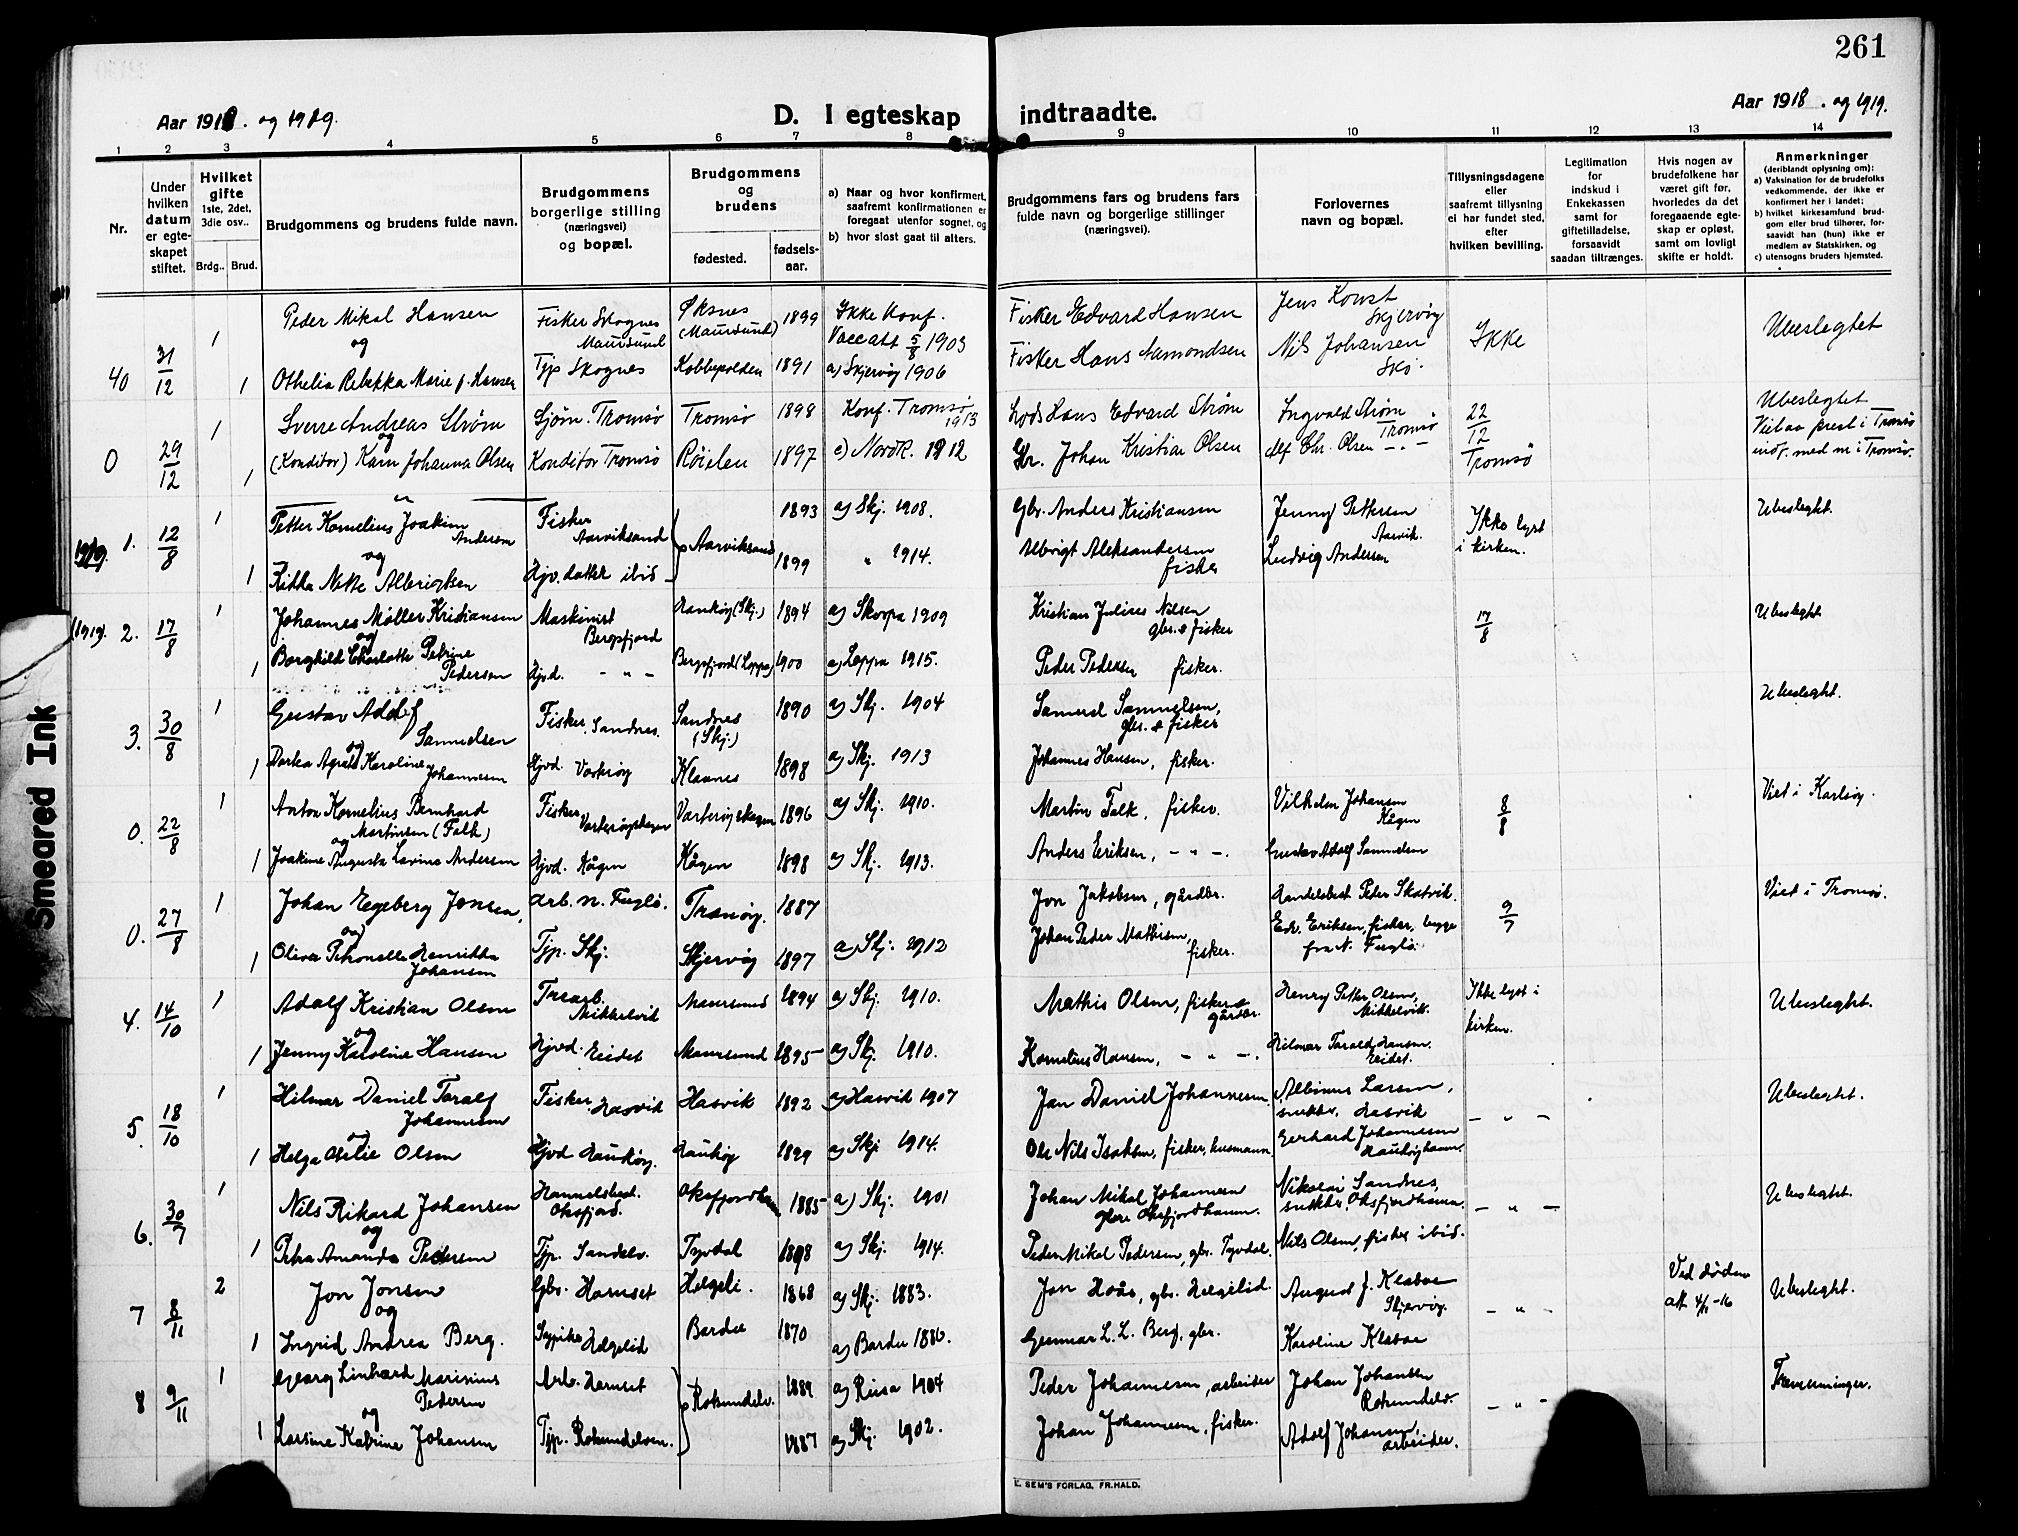 261
Aar 1918. og 1919.
D. I egteskap indtraadte.
Aar 1918. og 1919.
1 2 3 4 5 6 7 8 9 10 11 12 13 14
Nr.
Under hvilken datum er egteskapet stiftet.
Hvilket gifte 1ste, 2det, 3die osv..
Brdg.. Brud.
Brudgommens og brudens fulde navn.
Brudgommens borgerlige stilling (næringsvei) og bopæl.
Brudgommens og brudens
fødested.
fødsels-aar.
a) Naar og hvor konfirmert, saafremt konfirmationen er foregaat utenfor sognet, og
b) hvor slost gaat til alters.
Brudgommens fars og brudens fars fulde navn og borgerlige stillinger (næringsvei).
Forlovernes navn og bopæl.
Tillysningsdagene eller saafremt tillysning ei har fundet sted, efter hvilken bevilling.
Legitimation for indskud i Enkekassen samt for giftetilladelse, forsaavidt saadan tiltrænges.
Hvis nogen av brudefolkene har været gift før, hvorledes da det foregaaende egteskap er opløst, samt om lovligt skifte er holdt.
Anmerkninger (deriblandt oplysning om):
a) Vaksination for de brudefolks vedkommende, der ikke er konfirmert her i landet;
b) hvilket kirkesamfund brudgom eller brud tilhører, forsaavidt han (hun) ikke er medlem av Statskirken, og
c) utensogns bruders hjemsted.
40 31/12 1 Peder Mikal Hansen Fisker Skognes Maursund Øksnes (Maursund) 1899 Ikke Konf. Vaccatt 5/8 1903 Fisker Edvard Hansen Jens Konst Skjervøy Ikke Ubeslegtet
og
1 Othelia Rebekka Marie f. Hansen Tjp Skognes Kobbepolden 1891 a) Skjervøy 1906 Fisker Hans Aamondsen Nils Johansen Skj.
0 29/12 1 Sverre Andreas Strøm Sjøm. Tromsø Tromsø 1898 Konf. Tromsø 1913 Lods Hans Edvard Strøm Ingvald Strøm Tromsø 22/12 Tromsø Ubeslegtet
og Viet av prest i Tromsø
1 (Konditor) Karn Johanna Olsen Konditor Tromsø Røielen 1897 a) Nordk. 1912 Gbr. Johan Kristian Olsen Alf Chr. Olsen - " - indf. med m i Tromsø.
1919. 1. 12/8 1 Petter Kornelius Joakim Andersen Fisker Aarviksand Aarviksand 1893 a) Skj. 1908. Gbr. Anders Kristiansen Jenny Pettersen Aarvik. Ikke lyst i kirken. Ubesleght.
og
1 Rikka Nette Albrigtsen Hjv. datter ibid - 1899 " 1914. Albrigt Aleksandersen fisker Ludvig Andersen
(1919. 2. 17/8 1 Johannes Møller Kristiansen Maskinist Bergsfjord Haukøy (Skj.) 1894 a) Skorpa 1909 Kristian Julius Nilsen gbr. & fisker 17/8 Ubesleght
og
1 Borghild Charlotte Petrine Pedersen Hjvd. - " - Bergsfjord (Loppa) 1900 a) Loppa 1915. Peder Pedersen fisker.
3. 30/8 1 Gustav Adolf Samuelsen Fisker. Sandnes. Sandnes (Skj.) 1890 a) Skj. 1904 Samuel Samuelsen, gbr. & fisker Ubesleght.
og
1 Dorthea Agnete Karoline Johannesen Hjvd. Vorterøy Klaunes 1898 a) Skj. 1913 Johannes Hansen, fisker.
0. 22/8 1 Anton Kornelius Bernhard Martinsen (Falk) Fisker Vorterøyskagen Vorterøyskagen 1896 a) Skj. 1910. Martin Falk, fisker. Vilhelm Johansen Kågen 8/8 Viet i Karlsøy.
og
1 Joakime Augusta Lavine Andersen Hjvd. Kågen Kågen 1898 a) Skj. 1913. Anders Eriksen, - " -. Gustav Adolf Samuelsen
0. 27/8 1 Johan Egeberg Jensen, Arb. N. Fuglø. Tranøy. 1887 Jon Jakobsen, gårdbr. Handelsbest. Peter Skatvik. 9/7 Viet i Tromsø.
og
1 Oliva Petronelle Henrikka Johansen Tjp. Skj. Skjervøy 1897 a) Skj. 1912 Johan Peder Mathisen, fisker. Edv. Eriksen, fisker, begge fra N. Fuglø.
4. 14/10 1 Adolf Kristian Olsen Trearb. Mikkelvik Maursund 1894 a) Skj. 1910. Mathis Olsen, fisker & gårdbr. Henry Petter Olsen, Mikkelvik. Ikke lyst i kirken. Ubesleght.
og
1 Jenny Karoline Hansen Hjvd. Eidet Maursund 1895 a) Skj. 1910. Kornelius Hansen, - " -. Hilmar Torald Hansen, Eidet.
5. 18/10 1 Hilmar Daniel Toralf Johannesen Fisker Hasvik Hasvik 1892 a) Hasvik 1907 Jan Daniel Johannesen Albinus Larsen, snekker, Hasvik - " - Ubesleght.
og
1 Helga Otelie Olsen Hjvd Haukøy. Haukøy 1899 a) Skj. 1914. Ole Nils Isaksen, fisker, husmann Gerhard Johannesen Haukøyhavn.
6. 30/7 1 Nils Rikard Johansen Handelsbest. Oksfjord. Oksfjordhavn 1885 a) Skj. 1901 Johan Mikal Johannesen gbr. Oksfjordhavn. Nikolai Sandnes, snekker, Oksfjordhavn. - " - Ubesleght.
og
1 Petra Amanda Pedersen Tjp. Sandelv. Tyvdal 1898 a) Skj. 1914. Peder Mikal Pedersen, gbr. Tyvdal. Nils Olsen, fisker ibid.
7 8/11 2 Jon Jonsen Gbr. Hamset Helgeli. 1868 a) Skj. 1883. Jon Hoås, gbr. Helgelid. August J. Klæboe Skjervøy. - " - Ved døden att 4/1-16 Ubesleght.
og
1 Ingrid Andrea Berg. Sypike Helgelid Bardu 1870 a) Bardu 1886. Gunnar L. L. Berg, gbr. Karoline Klæboe
8 9/11 1 Georg Linhard Marinius Pedersen Arb. Hamset Rotsundelv. 1889 a) Reisa 1904 Peder Johannesen, arbeider Johan Johansen Rotsundelv. - " - Fremmeninger.
og
1 Larsine Katrine Johansen Tjp. Rotsundelven. 1887 a) Skj. 1902. Johan Johannesen, fisker. Adolf Johansen, arbeider.
E. SEM'S FORLAG, FR.HALD.
Smeared Ink